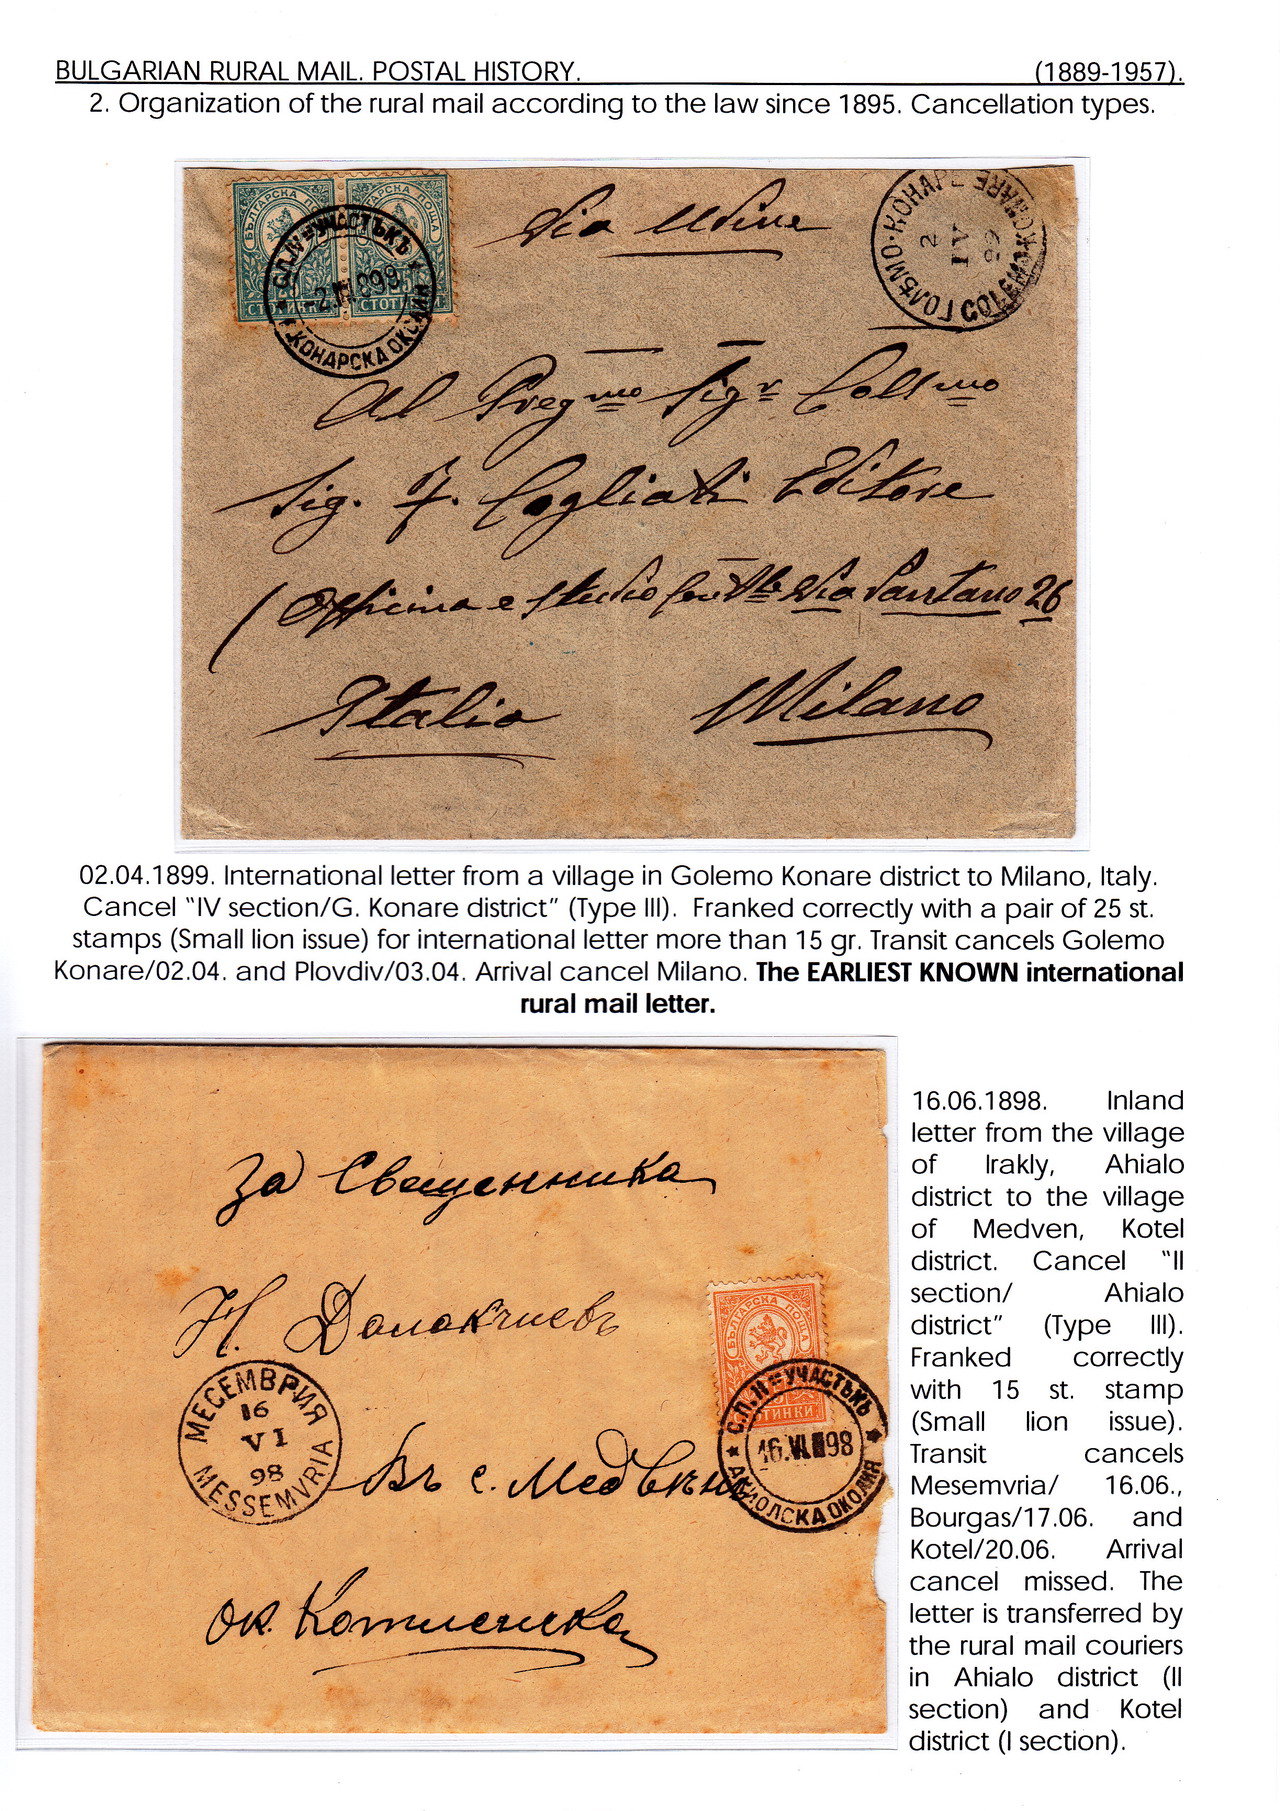 BULGARIAN RURAL MAIL. POSTAL HISTORY. (1889-1957).
2. Organization of the rural mail according to the law since 1895. Cancellation types.
БЪЛГАРСКА ПОЩА
СТОТИНКИ
С.П. IV УЧАСТЪКЪ
-2.IV.899
КОНАРСКА ОКОЛИЯ
Via Udine
ГОЛѢМО-КОНАРЕ
2
IV
99
GOLEMO KONARE
Al Pregmo Sigr Collmo
Sig. F. Cogliati Editore
(Officina e studio Via Pantano 26
Italia Milano
02.04.1899. International letter from a village in Golemo Konare district to Milano, Italy.
Cancel "IV section/G. Konare district" (Type III). Franked correctly with a pair of 25 st.
stamps (Small lion issue) for international letter more than 15 gr. Transit cancels Golemo
Konare/02.04. and Plovdiv/03.04. Arrival cancel Milano. The EARLIEST KNOWN international
rural mail letter.
За Священника
Н. Далакчиевъ
Въ с. Медвѣнъ
ок. Котленска
БЪЛГАРСКА ПОЩА
СТОТИНКИ
С.П. II УЧАСТЪКЪ
16.VI.98
АХИОЛСКА ОКОЛИЯ
МЕСЕМВРИЯ
16
VI
98
MESSEMVRIA
16.06.1898. Inland
letter from the village
of Irakly, Ahialo
district to the village
of Medven, Kotel
district. Cancel "II
section/ Ahialo
district" (Type III).
Franked correctly
with 15 st. stamp
(Small lion issue).
Transit cancels
Mesemvria/ 16.06.,
Bourgas/17.06. and
Kotel/20.06. Arrival
cancel missed. The
letter is transferred by
the rural mail couriers
in Ahialo district (II
section) and Kotel
district (I section).